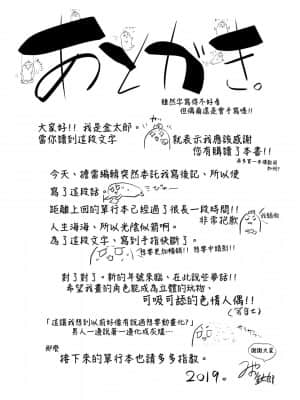 あとがき。
雖然字寫得不好看
但偶爾還是會手寫嗎!!
大家好!! 我是金太郎。
當你讀到這段文字
就表示我應該感謝
您有購讀了本書!!
今天、擔當編輯突然委託我寫後記、所以便
寫了這段話。
距離上回的單行本已經過了很長一段時間!!
非常抱歉
人生海海、所以光陰似箭啊。
為了這段文字、寫到手指快斷了。
對了對了。新的年號來臨、在此說些夢話!!
希望我畫的角色能成為立體的玩物、
可吸可舔的色情人偶!!
「這讓我想到以前好像有說過想要動畫化?」
男人一邊說著一邊化成灰燼…
那麼
接下來的單行本也請多多指教。
謝謝大家
2019。